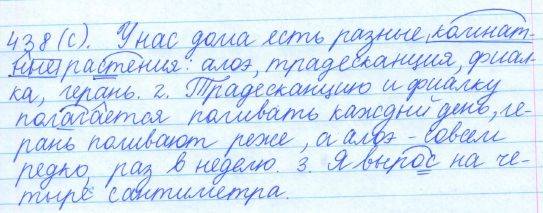 438(с). У нас дома есть разные комнат-
ные растения: алоэ, традесканция, фиал-
ка, герань. 2. Традесканцию и фиалку
полагается поливать каждый день, ге-
рань поливают реже, а алоэ - совсем
редко, раз в неделю. 3. Я вырос на че-
тыре сантиметра.